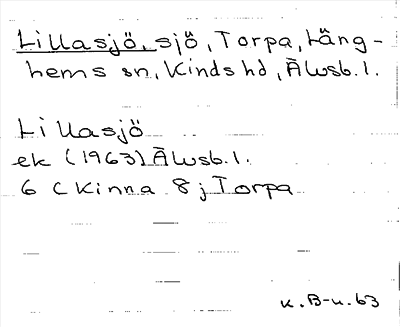 Lillasjö, sjö, Torpa, Läng-
hems sn, Kinds hd, Älvsb. l.
Lillasjö
ek (1963) Älvsb. l.
6 C Kinna 8 j Torpa
K. B-n. 63